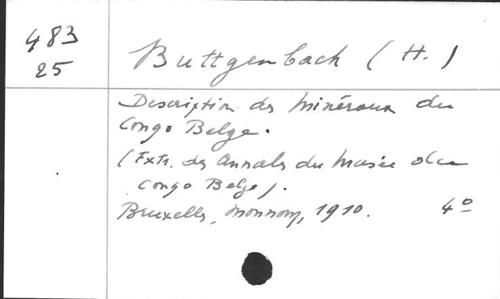 483
25
Buttgenbach (H.)
Description des Minéraux du
Congo Belge.
(Extr. des Annales du Musée du
Congo Belge).
Bruxelles, Monnom, 1910. 4º